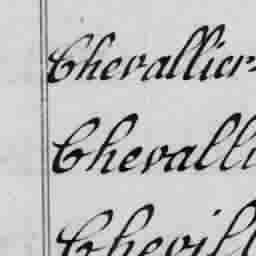 Chevallier
Chevalli
Chevill